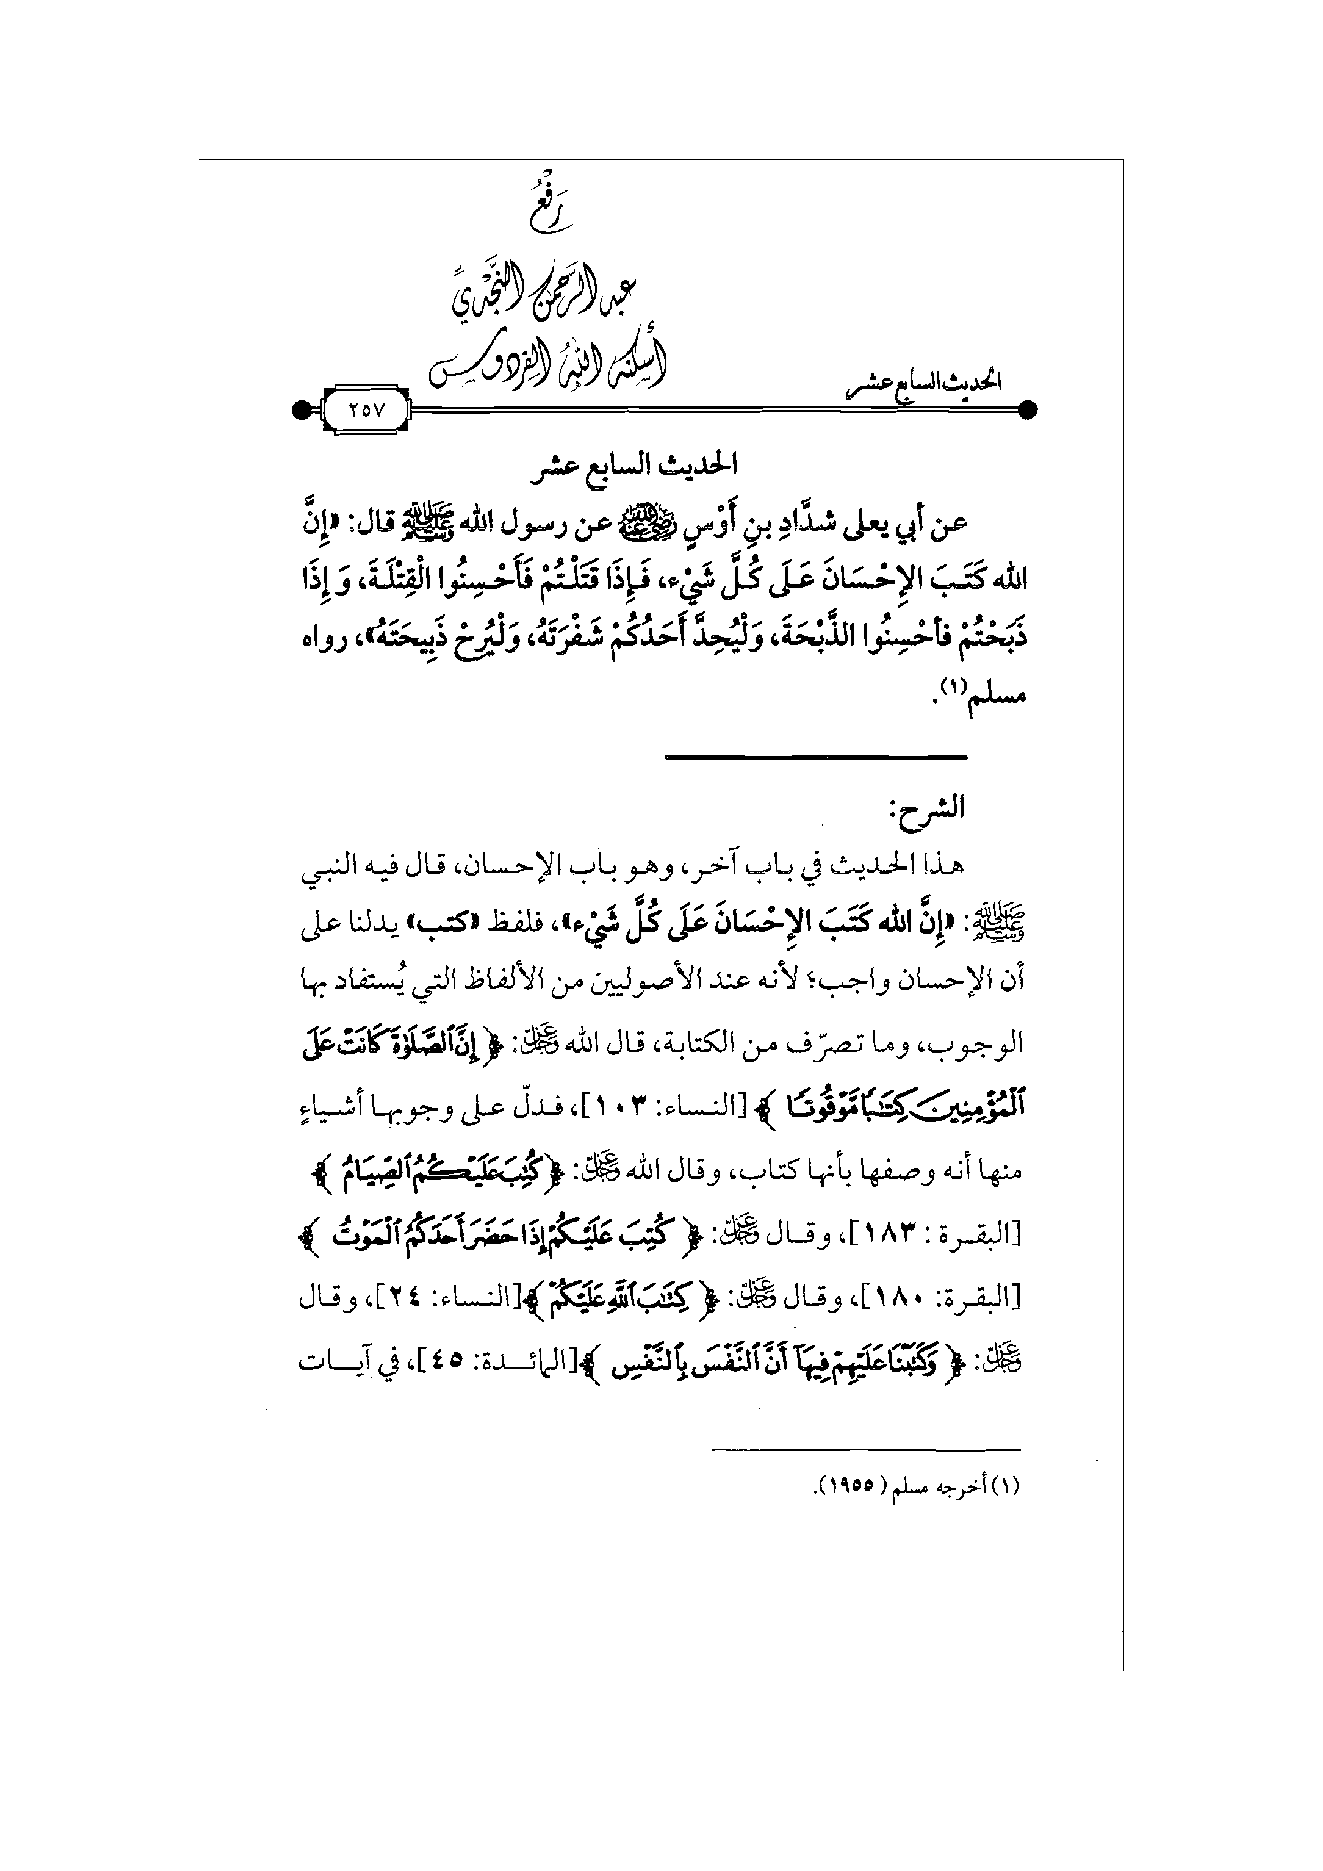 رَفْعُ
عبد الرَّحمن النَّجْدِيِّ
أسكنه الله الفردوس
الحديث السابع عشر
٢٥٧
الحديث السابع عشر
عن أبي يعلى شدَّادِ بنِ أَوْسٍ رضي الله عنه عن رسول الله ﷺ قال: «إِنَّ
الله كَتَبَ الإِحْسَانَ عَلَى كُلَّ شَيْء، فَإِذَا قَتَلْتُمْ فَأَحْسِنُوا الْقِتْلَةَ، وَإِذَا
ذَبَحْتُمْ فأحْسِنُوا الذِّبْحَةَ، وَلْيُحِدَّ أَحَدُكُمْ شَفْرَتَهُ، وَلْيُرِحْ ذَبِيحَتَهُ»، رواه
مسلم(١).
الشرح:
هذا الحديث في باب آخر، وهو باب الإحسان، قال فيه النبي
ﷺ: «إِنَّ الله كَتَبَ الإِحْسَانَ عَلَى كُلَّ شَيْء»، فلفظ «كتب» يدلنا على
أن الإحسان واجب؛ لأنه عند الأصوليين من الألفاظ التي يُستفاد بها
الوجوب، وما تصرّف من الكتابة، قال الله عز وجل: ﴿ إِنَّ ٱلصَّلَوٰةَ كَانَتْ عَلَى
ٱلْمُؤْمِنِينَ كِتَـٰبًا مَّوْقُوتًا ﴾ [النساء: ١٠٣]، فدلّ على وجوبها أشياءٍ
منها أنه وصفها بأنها كتاب، وقال الله عز وجل: ﴿ كُتِبَ عَلَيْكُمُ ٱلصِّيَامُ ﴾
[البقرة: ١٨٣]، وقال عز وجل: ﴿ كُتِبَ عَلَيْكُمْ إِذَا حَضَرَ أَحَدَكُمُ ٱلْمَوْتُ ﴾
[البقرة: ١٨٠]، وقال عز وجل: ﴿ كِتَـٰبَ ٱللَّهِ عَلَيْكُمْ ﴾[النساء: ٢٤]، وقال
عز وجل: ﴿ وَكَتَبْنَا عَلَيْهِمْ فِيهَآ أَنَّ ٱلنَّفْسَ بِٱلنَّفْسِ ﴾[المائدة: ٤٥]، في آيات
(١) أخرجه مسلم (١٩٥٥).